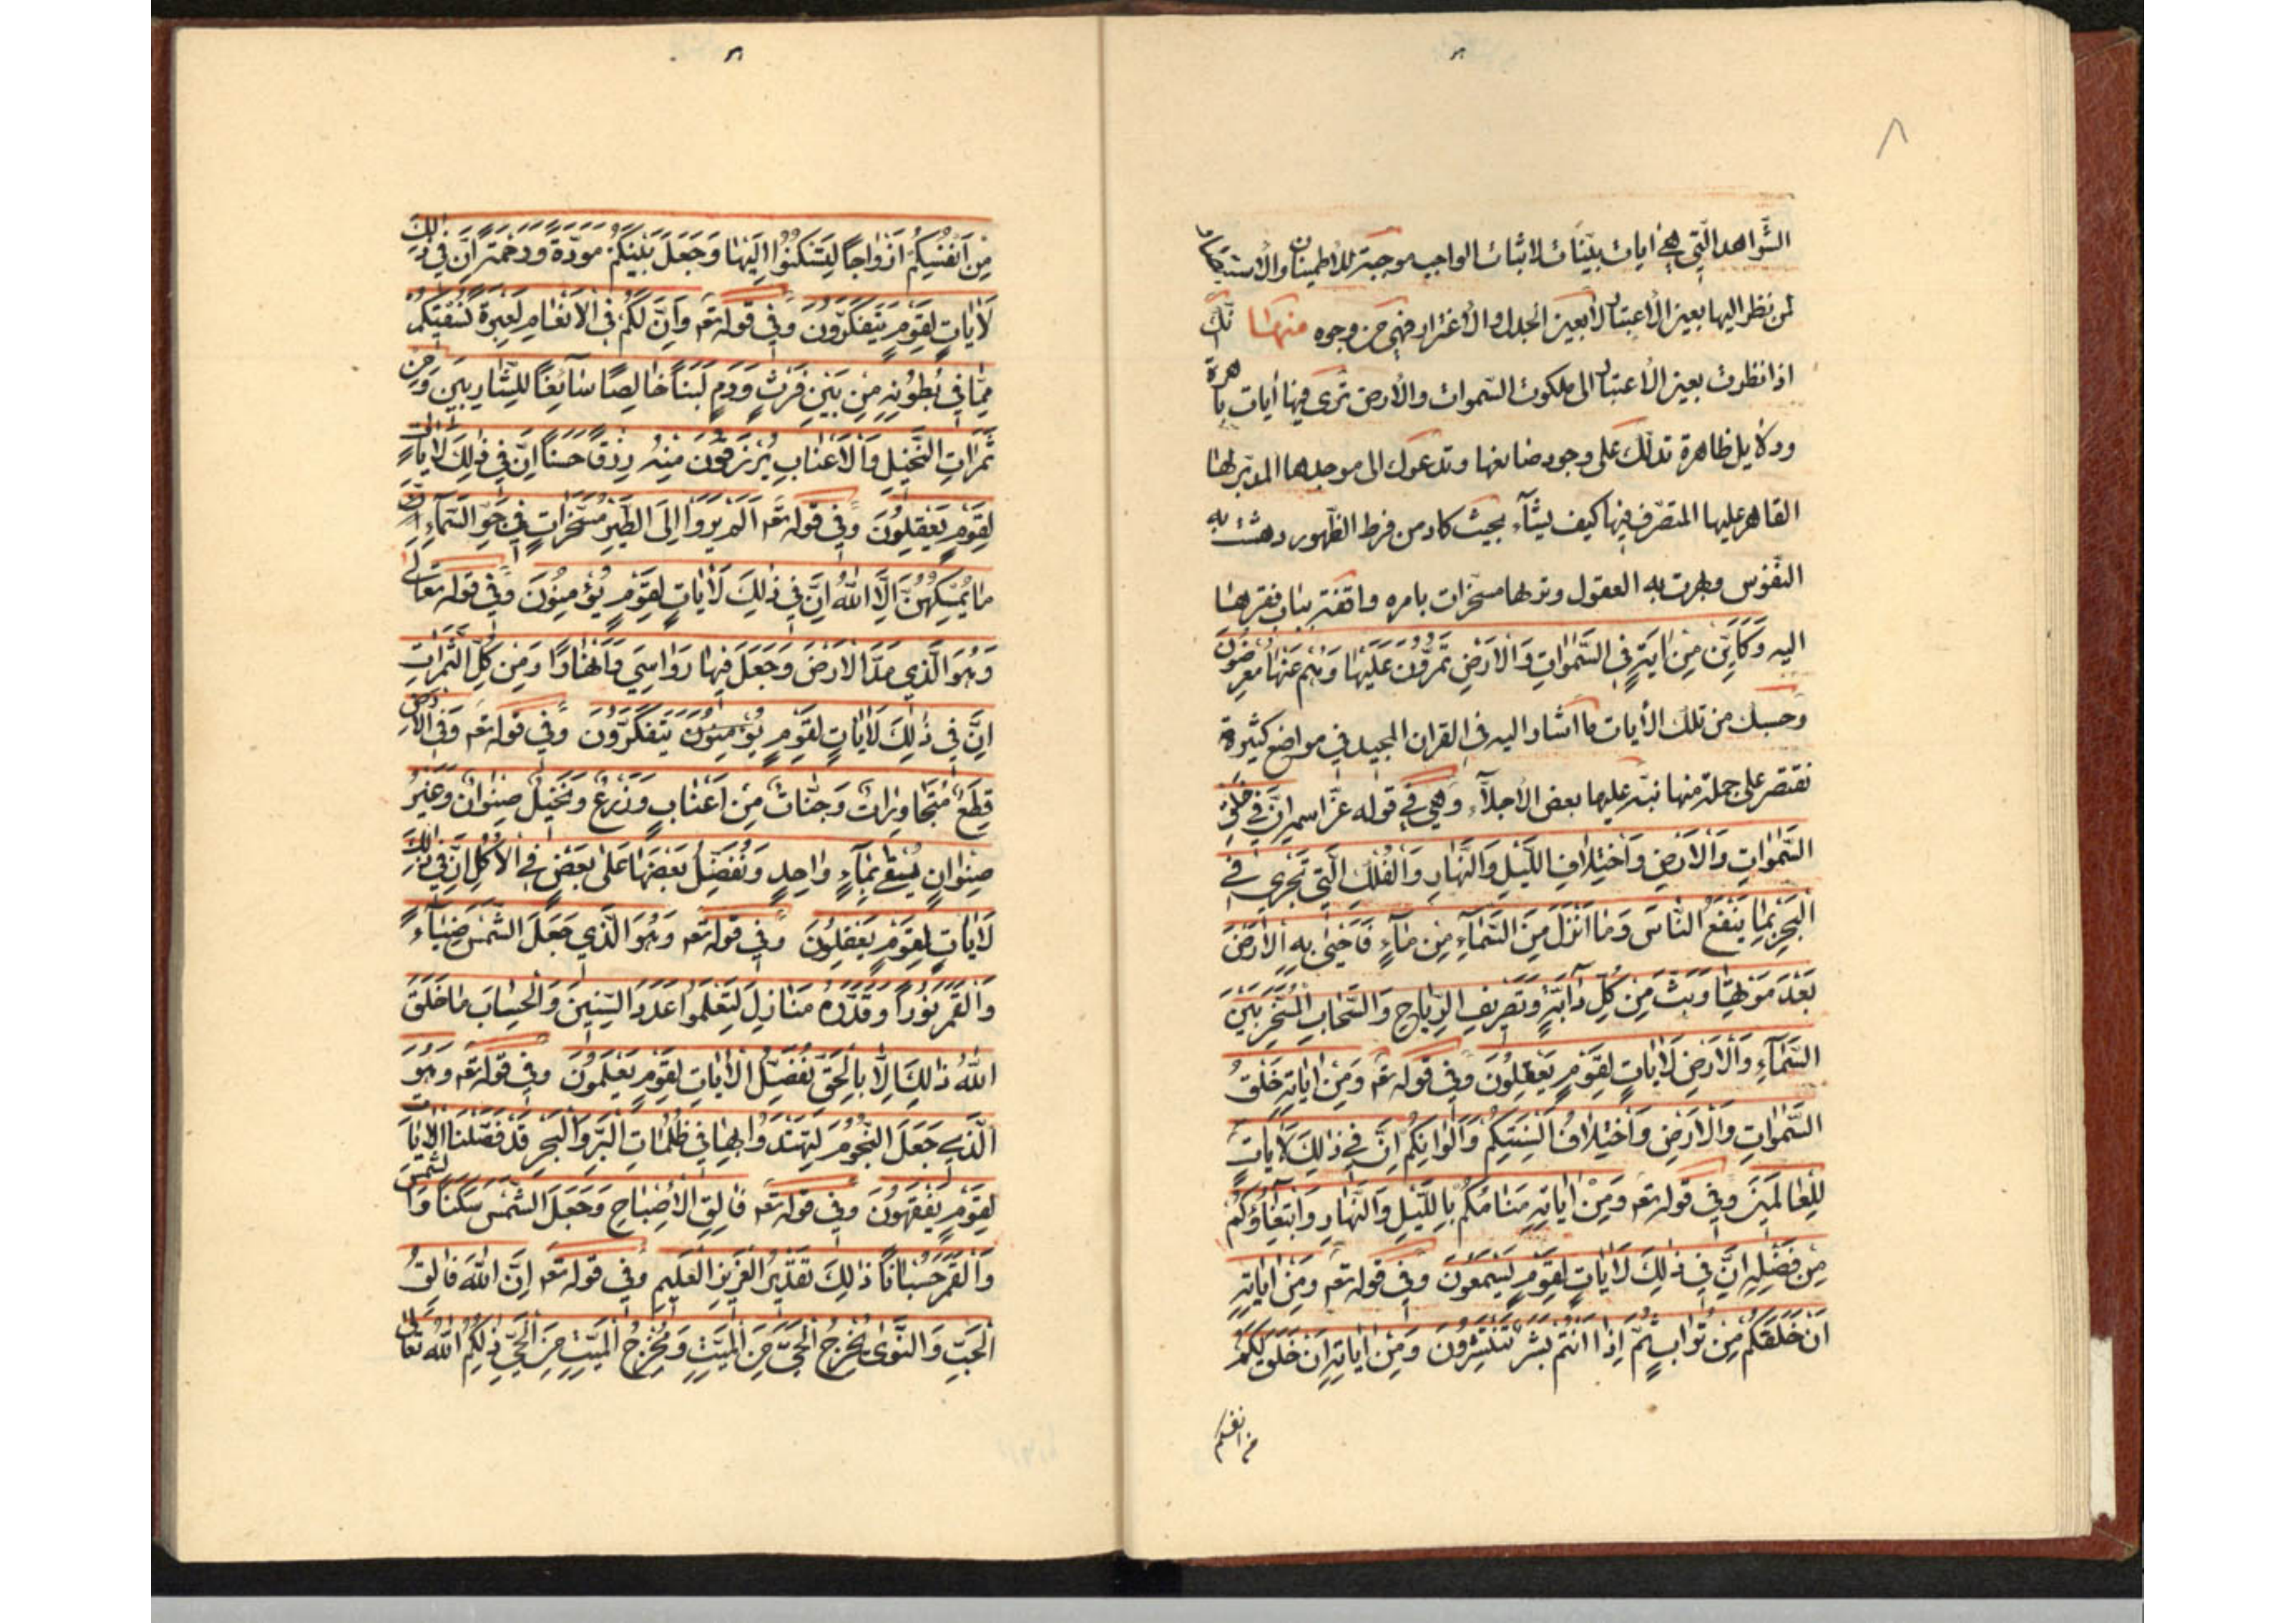 ٨
الشّواهد الّتي هي آيات بيّنات لاثبات الواجب موجبة للاطمينان والاستبصار
لمن نظر اليها بعين الاعتبار لا بعين الجدل والاغترار فهي من وجوه منها انّك
اذا نظرت بعين الاعتبار الى ملكوت السّموات والارض ترى فيها آيات باهرة
ودلايل ظاهرة تدلّك على وجود صانعها وتدعوك الى موجدها المدبّر لها
القاهر عليها المتصرّف فيها كيف يشآء بحيث كاد من فرط الظّهور دهشت به
النّفوس وبهرت به العقول وتراها مسخّرات بامره واقفة بباب فقرها
اليه وَكَاَيِّنْ مِنْ ايَةٍ فِي السَّمٰوَاتِ وَالْاَرْضِ تَمُرُّونَ عَلَيْهٰا وَهُمْ عَنْهٰا مُعْرِضُونَ
وحسبك من تلك الآيات ما اشار اليه في القران المجيد في مواضع كثيرة
نقتصر على جملة منها نبّه عليها بعض الاجلّآء وهي في قوله عزّ اسمه اِنَّ فِي خَلْقِ
السَّمٰوَاتِ وَالْاَرْضِ وَاخْتِلَافِ اللَّيْلِ وَالنَّهٰارِ وَالْفُلْكِ الَّتِي تَجْرِي فِي
الْبَحْرِ بِمٰا يَنْفَعُ النّٰاسَ وَمٰا اَنْزَلَ مِنَ السَّمٰآءِ مِنْ مٰآءٍ فَاَحْيٰى بِهِ الْاَرْضَ
بَعْدَ مَوْتِهٰا وَبَثَّ مِنْ كُلِّ دٰآبَّةٍ وَتَصْرِيفِ الرِّيٰاحِ وَالسَّحٰابِ الْمُسَخَّرِ بَيْنَ
السَّمٰآءِ وَالْاَرْضِ لَاٰيٰاتٍ لِقَوْمٍ يَعْقِلُونَ وفي قوله تعـ وَمِنْ اٰيٰاتِهِ خَلْقُ
السَّمٰوَاتِ وَالْاَرْضِ وَاخْتِلَافُ اَلْسِنَتِكُمْ وَاَلْوَانِكُمْ اِنَّ فِي ذٰلِكَ لَاٰيٰاتٍ
لِلْعٰالَمِينَ وفي قوله تعـ وَمِنْ اٰيٰاتِهِ مَنٰامُكُمْ بِاللَّيْلِ وَالنَّهٰارِ وَابْتِغٰاؤُكُمْ
مِنْ فَضْلِهِ اِنَّ فِي ذٰلِكَ لَاٰيٰاتٍ لِقَوْمٍ يَسْمَعُونَ وفي قوله تعـ وَمِنْ اٰيٰاتِهِ
اَنْ خَلَقَكُمْ مِنْ تُرٰابٍ ثُمَّ اِذٰا اَنْتُمْ بَشَرٌ تَنْتَشِرُونَ وَمِنْ اٰيٰاتِهِ اَنْ خَلَقَ لَكُمْ
من انفسكم
مِنْ اَنْفُسِكُمْ اَزْوٰاجًا لِتَسْكُنُوا اِلَيْهٰا وَجَعَلَ بَيْنَكُمْ مَوَدَّةً وَرَحْمَةً اِنَّ فِي ذٰلِكَ
لَاٰيٰاتٍ لِقَوْمٍ يَتَفَكَّرُونَ وفي قوله تعـ وَاِنَّ لَكُمْ فِي الْاَنْعٰامِ لَعِبْرَةً نُسْقِيكُمْ
مِمّٰا فِي بُطُونِهِ مِنْ بَيْنِ فَرْثٍ وَدَمٍ لَبَنًا خٰالِصًا سٰآئِغًا لِلشّٰارِبِينَ وَمِنْ
ثَمَرَاتِ النَّخِيلِ وَالْاَعْنٰابِ تُرْزَقُونَ مِنْهُ رِزْقًا حَسَنًا اِنَّ فِي ذٰلِكَ لَاٰيٰاتٍ
لِقَوْمٍ يَعْقِلُونَ وفي قوله تعـ اَلَمْ يَرَوْا اِلَى الطَّيْرِ مُسَخَّرَاتٍ فِي جَوِّ السَّمٰآءِ
مٰا يُمْسِكُهُنَّ اِلَّا اللّٰهُ اِنَّ فِي ذٰلِكَ لَاٰيٰاتٍ لِقَوْمٍ يُؤْمِنُونَ وفي قوله تعالى
وَهُوَ الَّذِي مَدَّ الْاَرْضَ وَجَعَلَ فِيهٰا رَوٰاسِيَ وَاَنْهٰارًا وَمِنْ كُلِّ الثَّمَرَاتِ
اِنَّ فِي ذٰلِكَ لَاٰيٰاتٍ لِقَوْمٍ يُؤْمِنُونَ يَتَفَكَّرُونَ وفي قوله تعـ وَفِي الْاَرْضِ
قِطَعٌ مُتَجٰاوِرٰاتٌ وَجَنّٰاتٌ مِنْ اَعْنٰابٍ وَزَرْعٌ وَنَخِيلٌ صِنْوٰانٌ وَغَيْرُ
صِنْوٰانٍ يُسْقٰى بِمٰآءٍ وٰاحِدٍ وَنُفَضِّلُ بَعْضَهٰا عَلٰى بَعْضٍ فِي الْاُكُلِ اِنَّ فِي ذٰلِكَ
لَاٰيٰاتٍ لِقَوْمٍ يَعْقِلُونَ وفي قوله تعـ وَهُوَ الَّذِي جَعَلَ الشَّمْسَ ضِيٰآءً
وَالْقَمَرَ نُورًا وَقَدَّرَهُ مَنٰازِلَ لِتَعْلَمُوا عَدَدَ السِّنِينَ وَالْحِسٰابَ مٰا خَلَقَ
اللّٰهُ ذٰلِكَ اِلَّا بِالْحَقِّ نُفَصِّلُ الْاٰيٰاتِ لِقَوْمٍ يَعْلَمُونَ وفي قوله تعـ وَهُوَ
الَّذِي جَعَلَ النُّجُومَ لِتَهْتَدُوا بِهٰا فِي ظُلُمٰاتِ الْبَرِّ وَالْبَحْرِ قَدْ فَصَّلْنَا الْاٰيٰاتِ
لِقَوْمٍ يَفْقَهُونَ وفي قوله تعـ فٰالِقِ الْاِصْبٰاحِ وَجَعَلَ الشَّمْسَ سَكَنًا وَالشَّمْسَ
وَالْقَمَرَ حُسْبٰانًا ذٰلِكَ تَقْدِيرُ الْعَزِيزِ الْعَلِيمِ وفي قوله تعـ اِنَّ اللّٰهَ فٰالِقُ
الْحَبِّ وَالنَّوٰى يُخْرِجُ الْحَيَّ مِنَ الْمَيِّتِ وَمُخْرِجُ الْمَيِّتِ مِنَ الْحَيِّ ذٰلِكُمُ اللّٰهُ تعالى